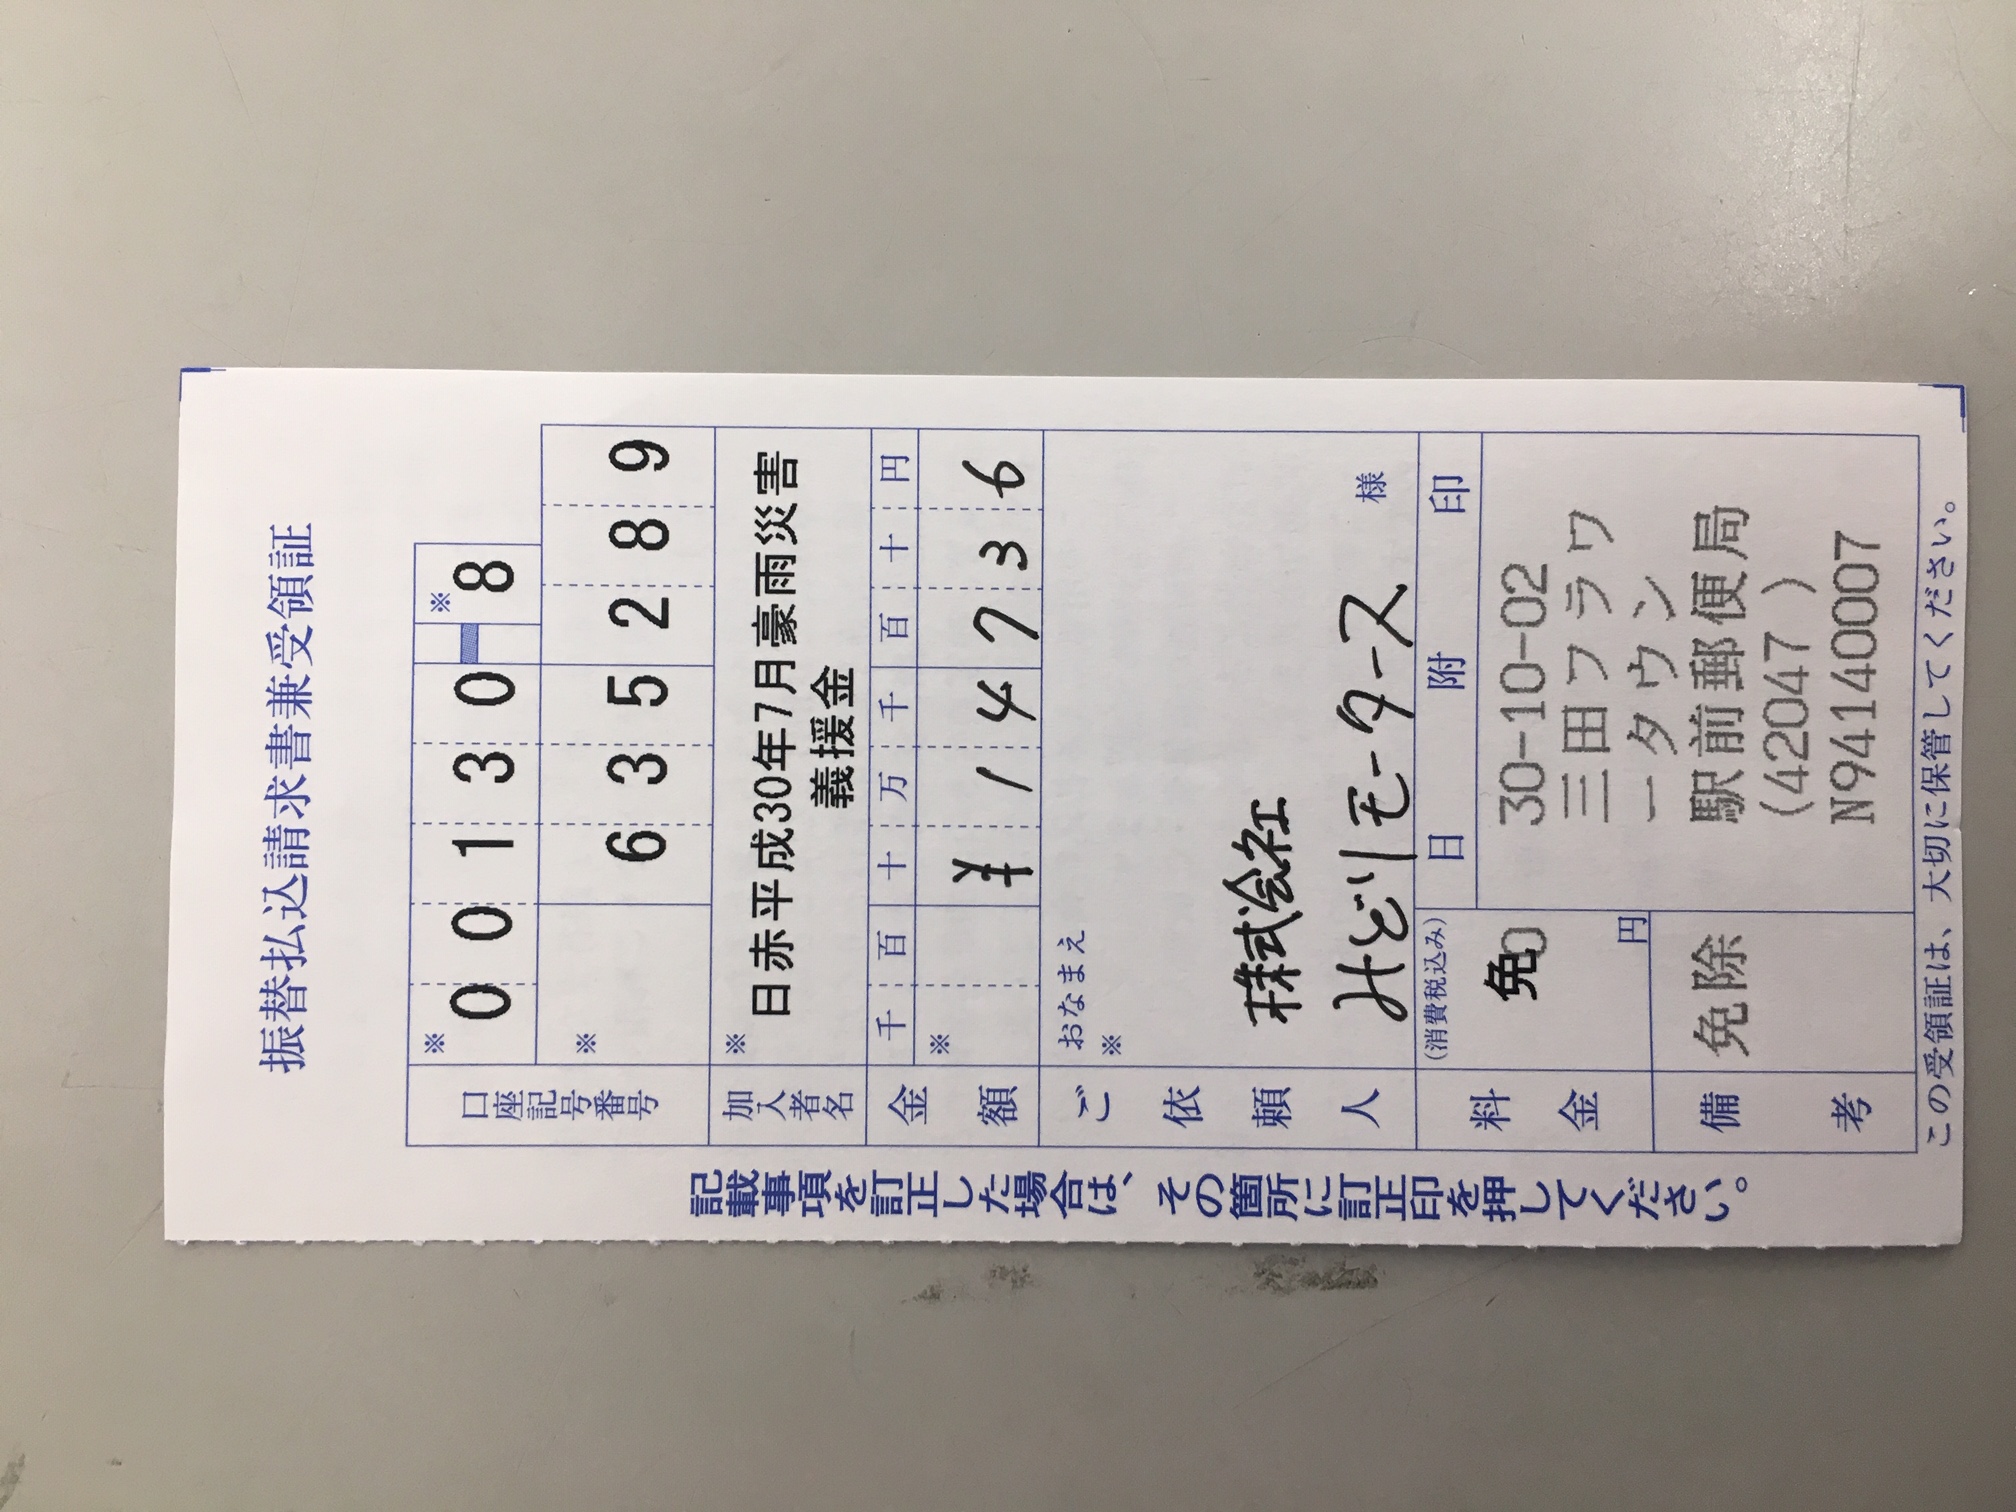 振替払込請求書兼受領証
口座記号番号
※
00130
※
8
※
635289
加入者名
※
日赤平成30年7月豪雨災害
義援金
金額
千百十万千百十円
※
¥14736
ご依頼人
おなまえ
※
株式会社
みどりモータース
様
料金
(消費税込み)
免
0
円
日附印
30-10-02
三田フラワ
ータウン
駅前郵便局
(42047 )
N94140007
備考
免除
記載事項を訂正した場合は、その箇所に訂正印を押してください。
この受領証は、大切に保管してください。